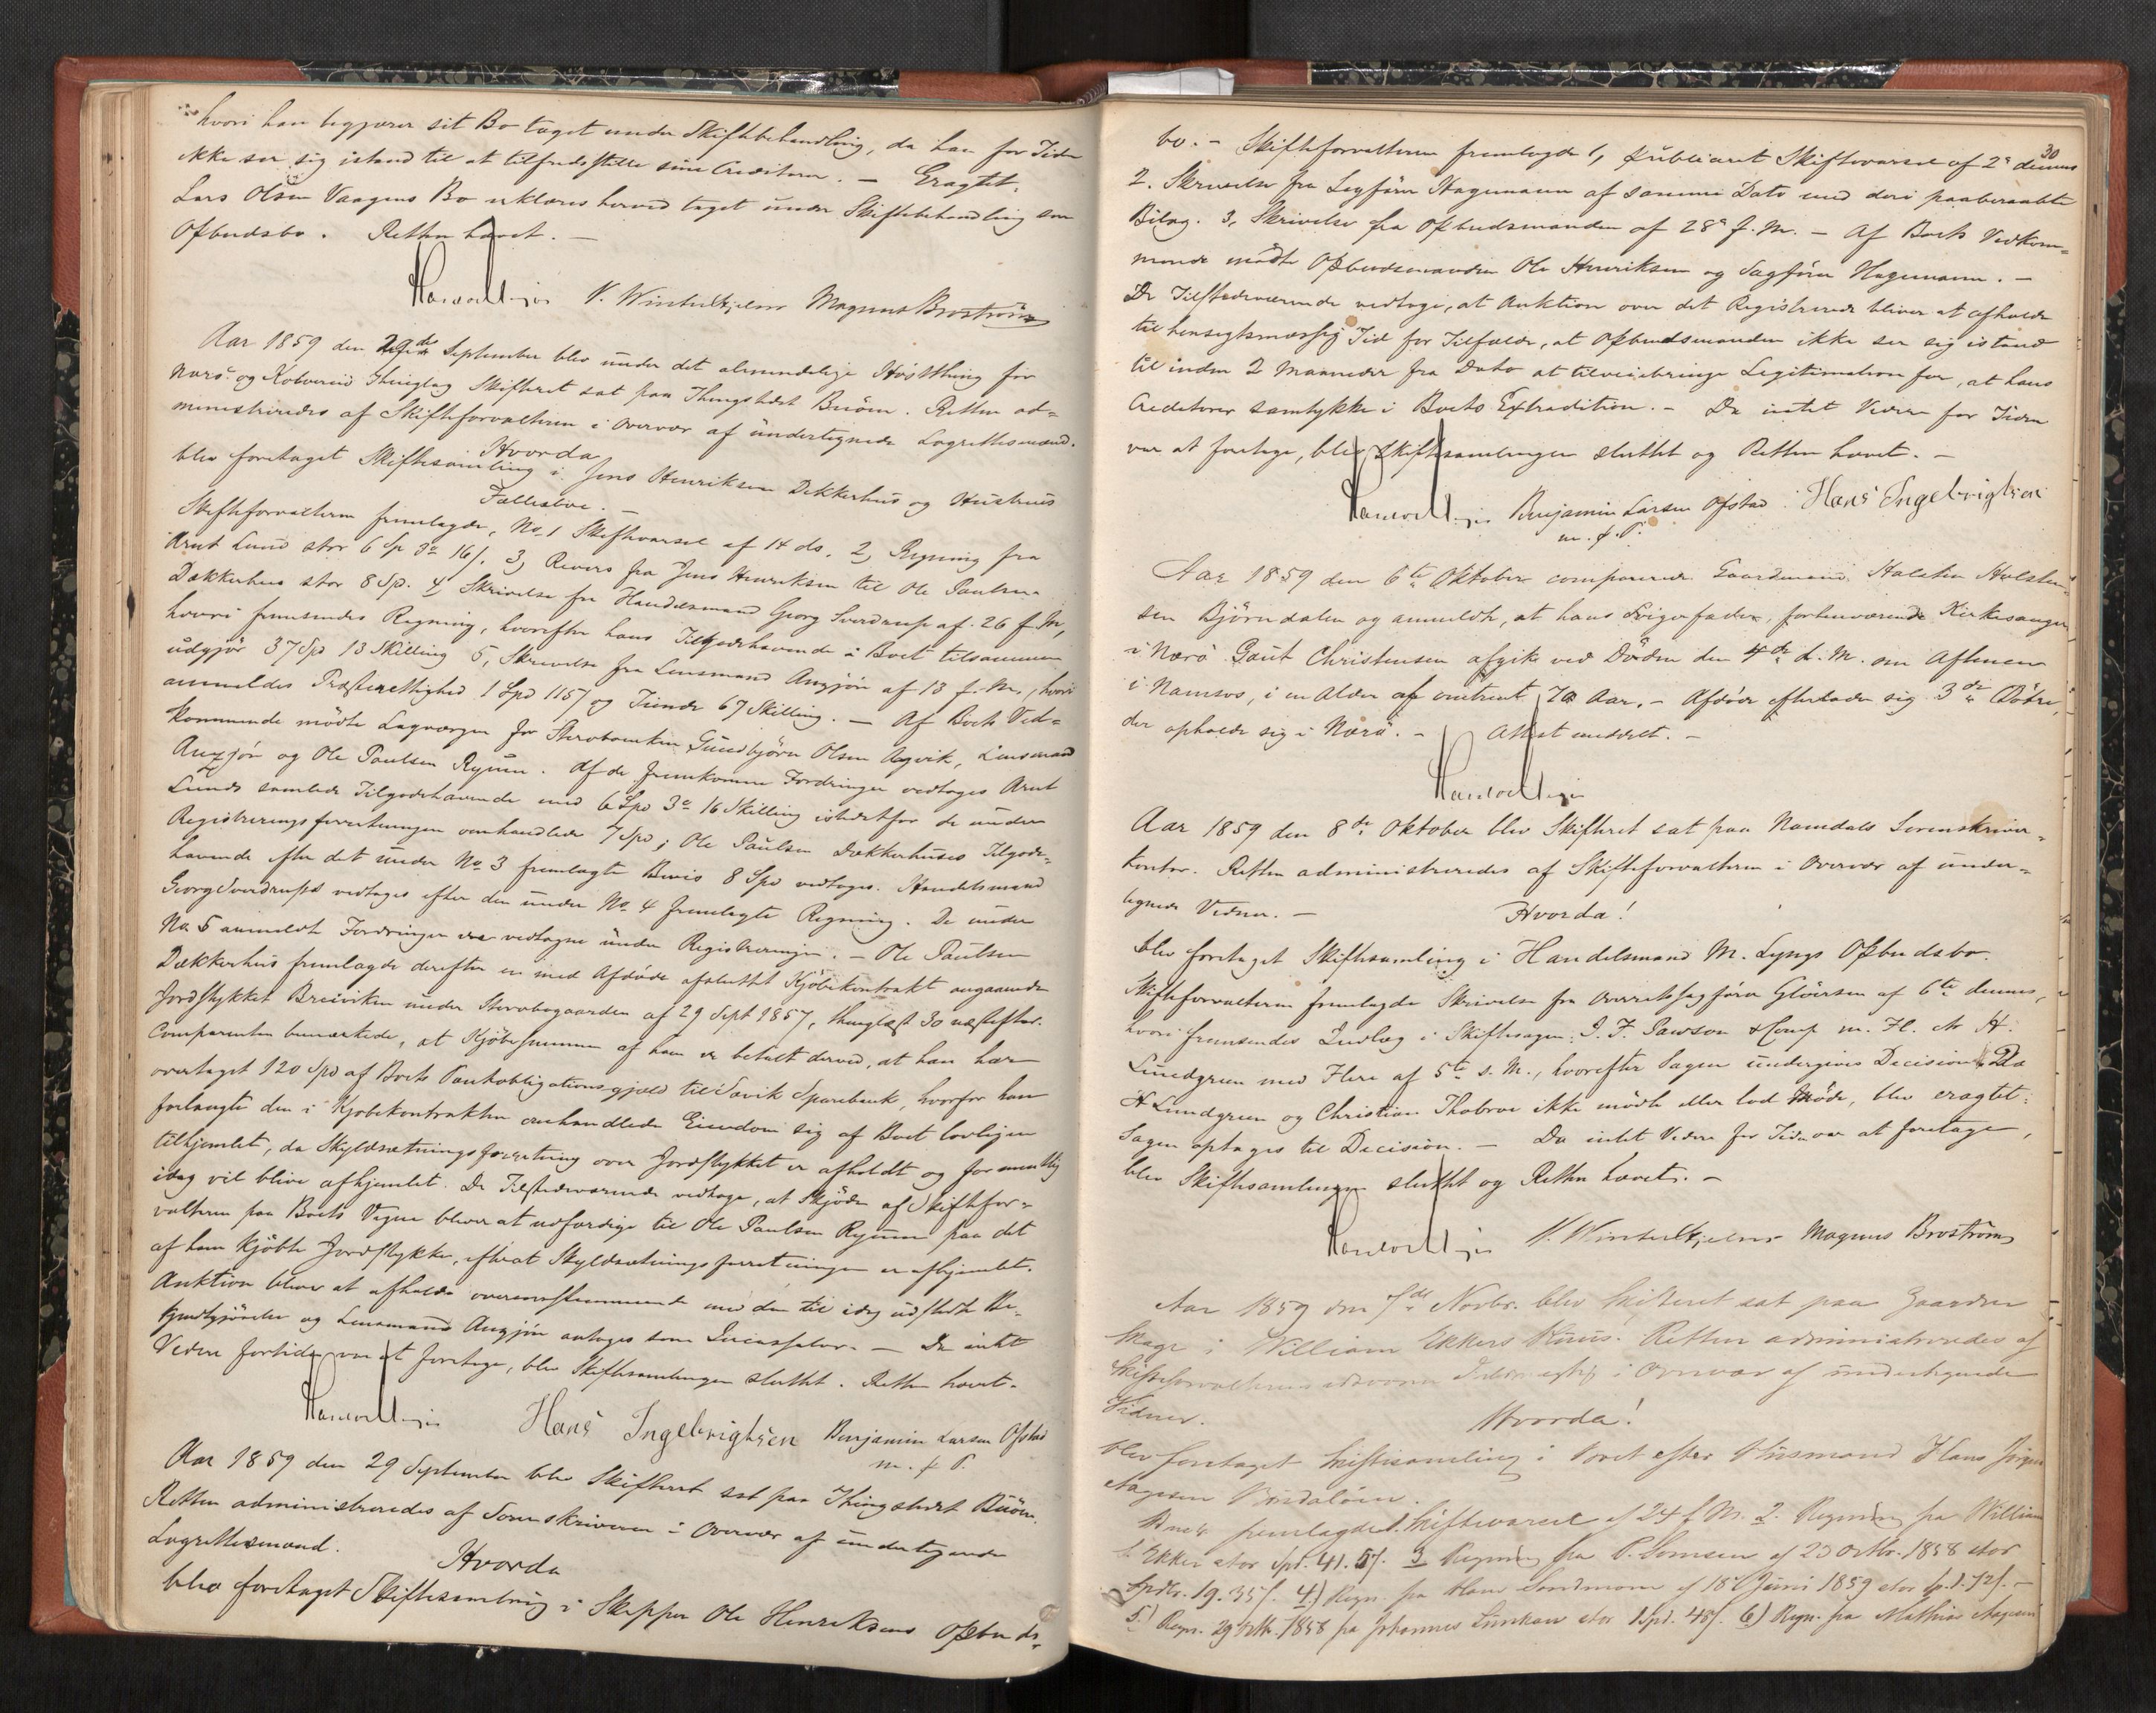 hvori han begjærer sit Bo taget under Skiftebehandling, da han for Tiden
ikke ser sig istand til at tilfredsstille sine Creditorer. — Eragtet:
Lars Olsen Vaagens Bo erklæres herved taget under Skiftebehandling som
Opbudsbo. Retten hævet. —
V. Winterhjelm Magnus Broström
Aar 1859 den 29de September blev under det almindelige Høstthing for
Nærø og Kolvereid Thinglag Skifteret sat paa Thingstedet Buöen. Retten ad=
ministreredes af Skifteforvalteren i Overvær af undertegnede Lagrettesmænd.
Hvorda
blev foretaget Skiftesamling i Jens Henriksen Dekkerhus og Hustrues
Fællesboe. —
Skifteforvalteren fremlagde, No. 1 Skiftevarsel af 14 ds. 2, Regning fra
Arnt Lund stor 6 Sp 3 16/. 3, Revers fra Jens Henriksen til Ole Paulsen
Dækkerhus stor 8 Sp. 4 Skrivelse fra Handelsmand Georg Sverdrup af 26 f. M,
hvori fremsendes Regning, hvorefter hans Tilgodehavende i Boet tilsammen
udgjør 37 Spd 13 Skilling 5, Skrivelse fra Lensmand Angjön af 13 f. M., hvori
anmeldes Præsterettighed 1 Spd 115/ og Tiende 67 Skilling. — Af Boets Ved=
kommende mødte Lagværgen for Stervboenken Gundbjörn Olsen Aagvik, Lensmand
Angjön og Ole Paulsen Ryum. Af de fremkomne Fordringer vedtoges Arnt
Lunds samlede Tilgodehavende med 6 Spd 3 16 Skilling istedetfor de under
Registreringsforretningen omhandlede 7 Spd; Ole Paulsen Dækkerhuses Tilgode=
havende efter det under No 3 fremlagte Bevis 8 Spd vedtoges. Handelsmand
Georg Sverdrups vedtoges efter den under No. 4 fremlagte Regning. De under
No 5 anmeldte Fordringer ere vedtagne under Registreringen. — Ole Paulsen
Dækkerhus fremlagde derefter en med Afdøde afsluttet Kjöbekontrakt angaaende
Jordstykket Breiviken under Stervbogaarden af 29 Sept 1857, thinglæst 30 næstefter.
Comparenten bemærkede, at Kjöbesummen af ham er betalt derved, at han har
overtaget 120 Spd af Boets Pantobligationsgjæld til Sparebank, hvorfor han
forlangte den i Kjøbekontrakten omhandlede Eiendom sig af Boet lovligen
tilhjemlet, da Skyldsætningsforretning over Jordstykket er afholdt og formentlig
idag vil blive afhjemlet. De Tilstedeværende vedtoge, at Skjöde af Skiftefor=
valteren paa Boets Vegne bliver at udfærdige til Ole Paulsen Ryum paa det
af ham kjöbte Jordstykke, efterat Skyldsætningsforretningen er afhjemlet.
Auktion bliver at afholde overensstemmende med den til idag udstedte Be=
kjendtgjörelse og Lensmand Angjön antoges som Incassator. — Da intet
Videre fortiden var at foretage, blev Skiftesamlingen sluttet. Retten hævet.
Hans Ingebrigtsen Benjamin Larsen Ofstad
m. f. P.
Aar 1859 den 29 September blev Skifteret sat paa Thingstedet Buöen.
Retten administreredes af Sorenskriveren i Overvær af undertegnede
Lagrettesmænd.
Hvorda
blev foretaget Skiftesamling i Skipper Ole Henriksens Opbuds=
30
bo. – Skifteforvalteren fremlagde 1, publiceret Skiftevarsel af 2 dennes
2. Skrivelse fra Sagfører Hagemann af samme Dato med deri paaberaabte
Bilag. 3, Skrivelse fra Opbudsmanden af 28 f. M. – Af Boets Vedkom=
mende mødte Opbudsmanden Ole Henriksen og Sagfører Hagemann. –
De Tilstedeværende vedtoge, at Auktion over det Registrerede bliver at afholde
til hensigtsmæssig Tid for Tilfælde, at Opbudsmanden ikke ser sig istand
til inden 2 Maaneder fra Dato at tilveiebringe Legitimation for, at hans
Creditorer samtykke i Boets Extradition. – Da intet Videre for Tiden
var at foretage, blev Skiftesamlingen sluttet og Retten hævet. –
Benjamin Larsen Ofstad Hans Ingebrigtsen
m. f. P.
Aar 1859 den 6te Oktober comparerede Gaardmand Halsten Halsten=
sen Björndalen og anmeldte, at hans Svigerfader, forhenværende Kirkesanger
i Nærö Gaut Christensen afgik ved Döden den 4de d. M. om Aftenen
i Namsos, i en Alder af omtrent 70 Aar. – Afdöde efterlader sig 3de Døtre,
der opholde sig i Nærö. – Attest meddelt. –
Aar 1859 den 8de Oktober blev Skifteret sat paa Namdals Sorenskriver=
kontor. Retten administreredes af Skifteforvalteren i Overvær af under=
tegnede Vidner. – Hvorda!
blev foretaget Skiftesamling i Handelsmand M. Lyngs Opbudsbo.
Skifteforvalteren fremlagde Skrivelse fra Overretssagförer Glöersen af 6te dennes,
hvori fremsendes Indlæg i Skiftesagen: J. F. Pawson & Comp m. Fl. ctr H.
Lundgreen med Flere af 5te s. M., hvorefter Sagen undergives Decision. Da
H Lundgreen og Christian Thobroe ikke mødte eller lod Möde, blev eragtet:
Sagen optages til Decision. — Da intet Videre for Tiden var at foretage,
blev Skiftesamlingen sluttet og Retten hævet. –
V. Winterhjelm Magnus Broström
Aar 1859 den 7de Novbr. blev Skifteret sat paa Gaarden
Skage i William Ekkers Huus. Retten administreredes af
Skifteforvalterens i Overvær af undertegnede
Vidner. Hvorda!
blev foretaget Skiftesamling i Boet efter Huusmand Hans
Aagesen
fremlagdes 1. Skiftevarsel af 24 f. M. 2. Regning fra William
Ekker stor Spd. 41. 3 Regning fra P. af 23 Octbr. 1858 stor
Spdlr. 19. 35/. 4) Regn. fra af 18 Juni 1859 stor
5) Regn. 29 Octbr. 1858 fra Johannes stor 1 Spd. 48/. 6) Regn. fra Mathias Aagesen